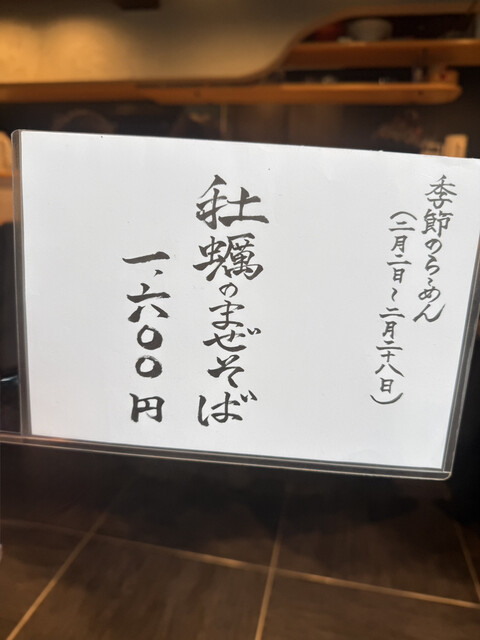 季節のらーめん
（二月二日～二月二十八日）
牡蠣のまぜそば
一、六〇〇円